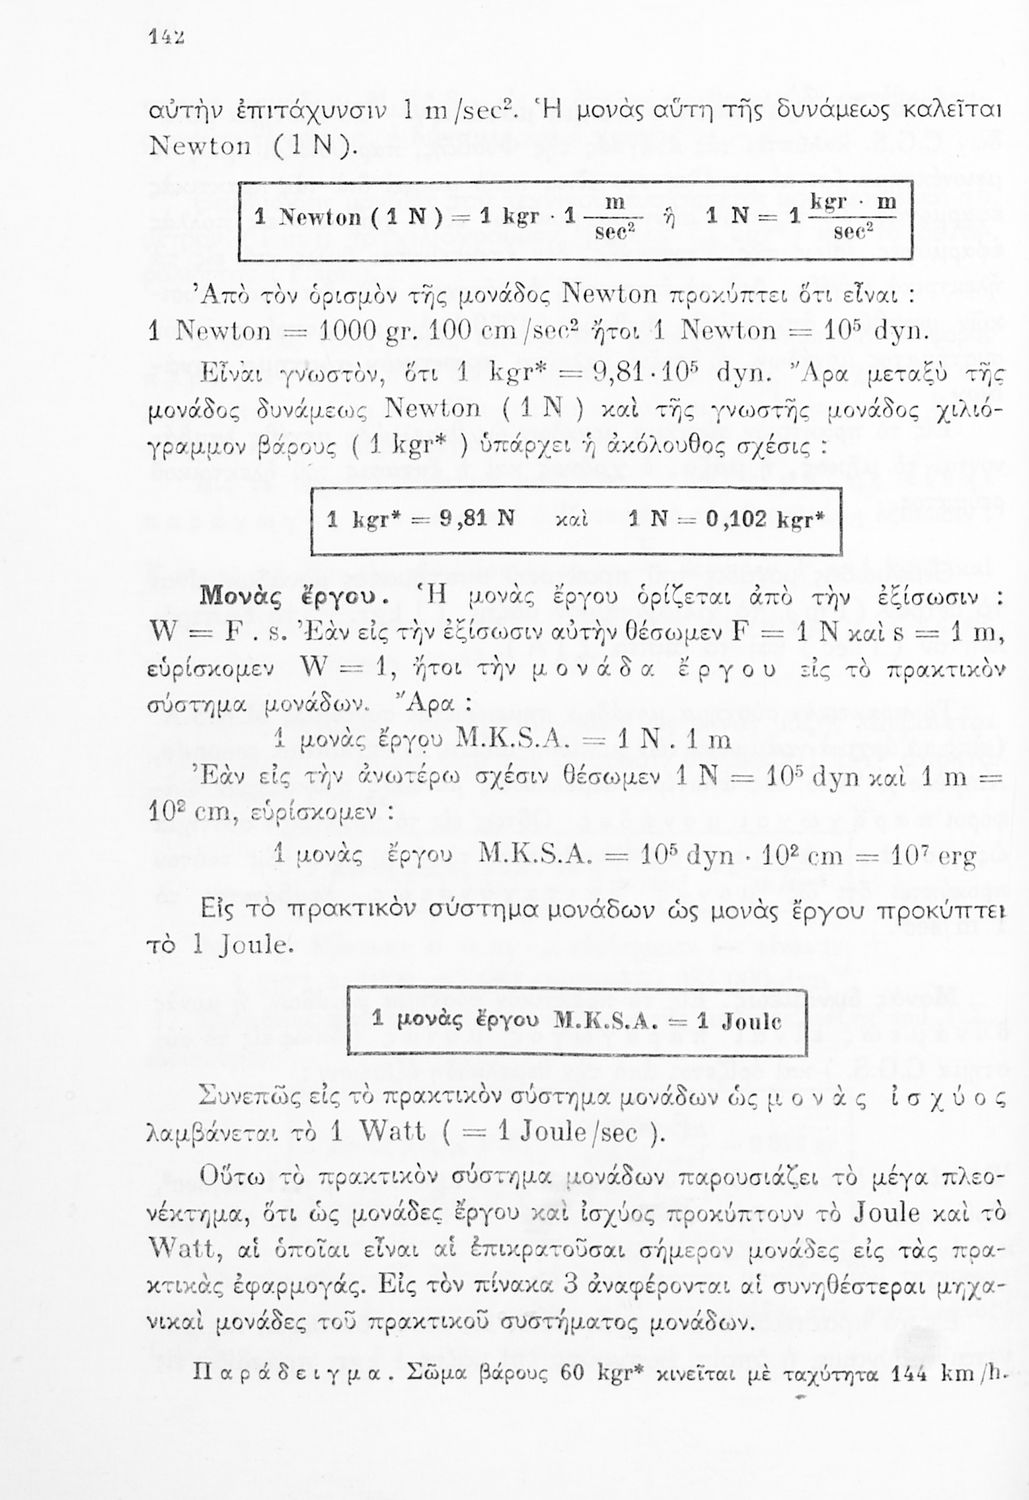 142
αὐτὴν ἐπιτάχυνσιν 1 m/sec². Ἡ μονὰς αὕτη τῆς δυνάμεως καλεῖται
Newton (1 N).
1 Newton (1 N) = 1 kgr · 1 m/sec² ἢ 1 N = 1 kgr · m/sec²
Ἀπὸ τὸν ὁρισμὸν τῆς μονάδος Newton προκύπτει ὅτι εἶναι :
1 Newton = 1000 gr. 100 cm/sec² ἤτοι 1 Newton = 10⁵ dyn.
Εἶναι γνωστὸν, ὅτι 1 kgr* = 9,81·10⁵ dyn. Ἄρα μεταξὺ τῆς
μονάδος δυνάμεως Newton (1 N) καὶ τῆς γνωστῆς μονάδος χιλιό-
γραμμον βάρους (1 kgr*) ὑπάρχει ἡ ἀκόλουθος σχέσις :
1 kgr* = 9,81 N καὶ 1 N = 0,102 kgr*
Μονὰς ἔργου. Ἡ μονὰς ἔργου ὁρίζεται ἀπὸ τὴν ἐξίσωσιν :
W = F . s. Ἐὰν εἰς τὴν ἐξίσωσιν αὐτὴν θέσωμεν F = 1 N καὶ s = 1 m,
εὑρίσκομεν W = 1, ἤτοι τὴν μονάδα ἔργου εἰς τὸ πρακτικὸν
σύστημα μονάδων. Ἄρα :
1 μονὰς ἔργου M.K.S.A. = 1 N . 1 m
Ἐὰν εἰς τὴν ἀνωτέρω σχέσιν θέσωμεν 1 N = 10⁵ dyn καὶ 1 m =
10² cm, εὑρίσκομεν :
1 μονὰς ἔργου M.K.S.A. = 10⁵ dyn · 10² cm = 10⁷ erg
Εἰς τὸ πρακτικὸν σύστημα μονάδων ὡς μονὰς ἔργου προκύπτει
τὸ 1 Joule.
1 μονὰς ἔργου M.K.S.A. = 1 Joule
Συνεπῶς εἰς τὸ πρακτικὸν σύστημα μονάδων ὡς μονὰς ἰσχύος
λαμβάνεται τὸ 1 Watt ( = 1 Joule/sec ).
Οὕτω τὸ πρακτικὸν σύστημα μονάδων παρουσιάζει τὸ μέγα πλεο-
νέκτημα, ὅτι ὡς μονάδες ἔργου καὶ ἰσχύος προκύπτουν τὸ Joule καὶ τὸ
Watt, αἱ ὁποῖαι εἶναι αἱ ἐπικρατοῦσαι σήμερον μονάδες εἰς τὰς πρα-
κτικὰς ἐφαρμογάς. Εἰς τὸν πίνακα 3 ἀναφέρονται αἱ συνηθέστεραι μηχα-
νικαὶ μονάδες τοῦ πρακτικοῦ συστήματος μονάδων.
Παράδειγμα. Σῶμα βάρους 60 kgr* κινεῖται μὲ ταχύτητα 144 km/h.